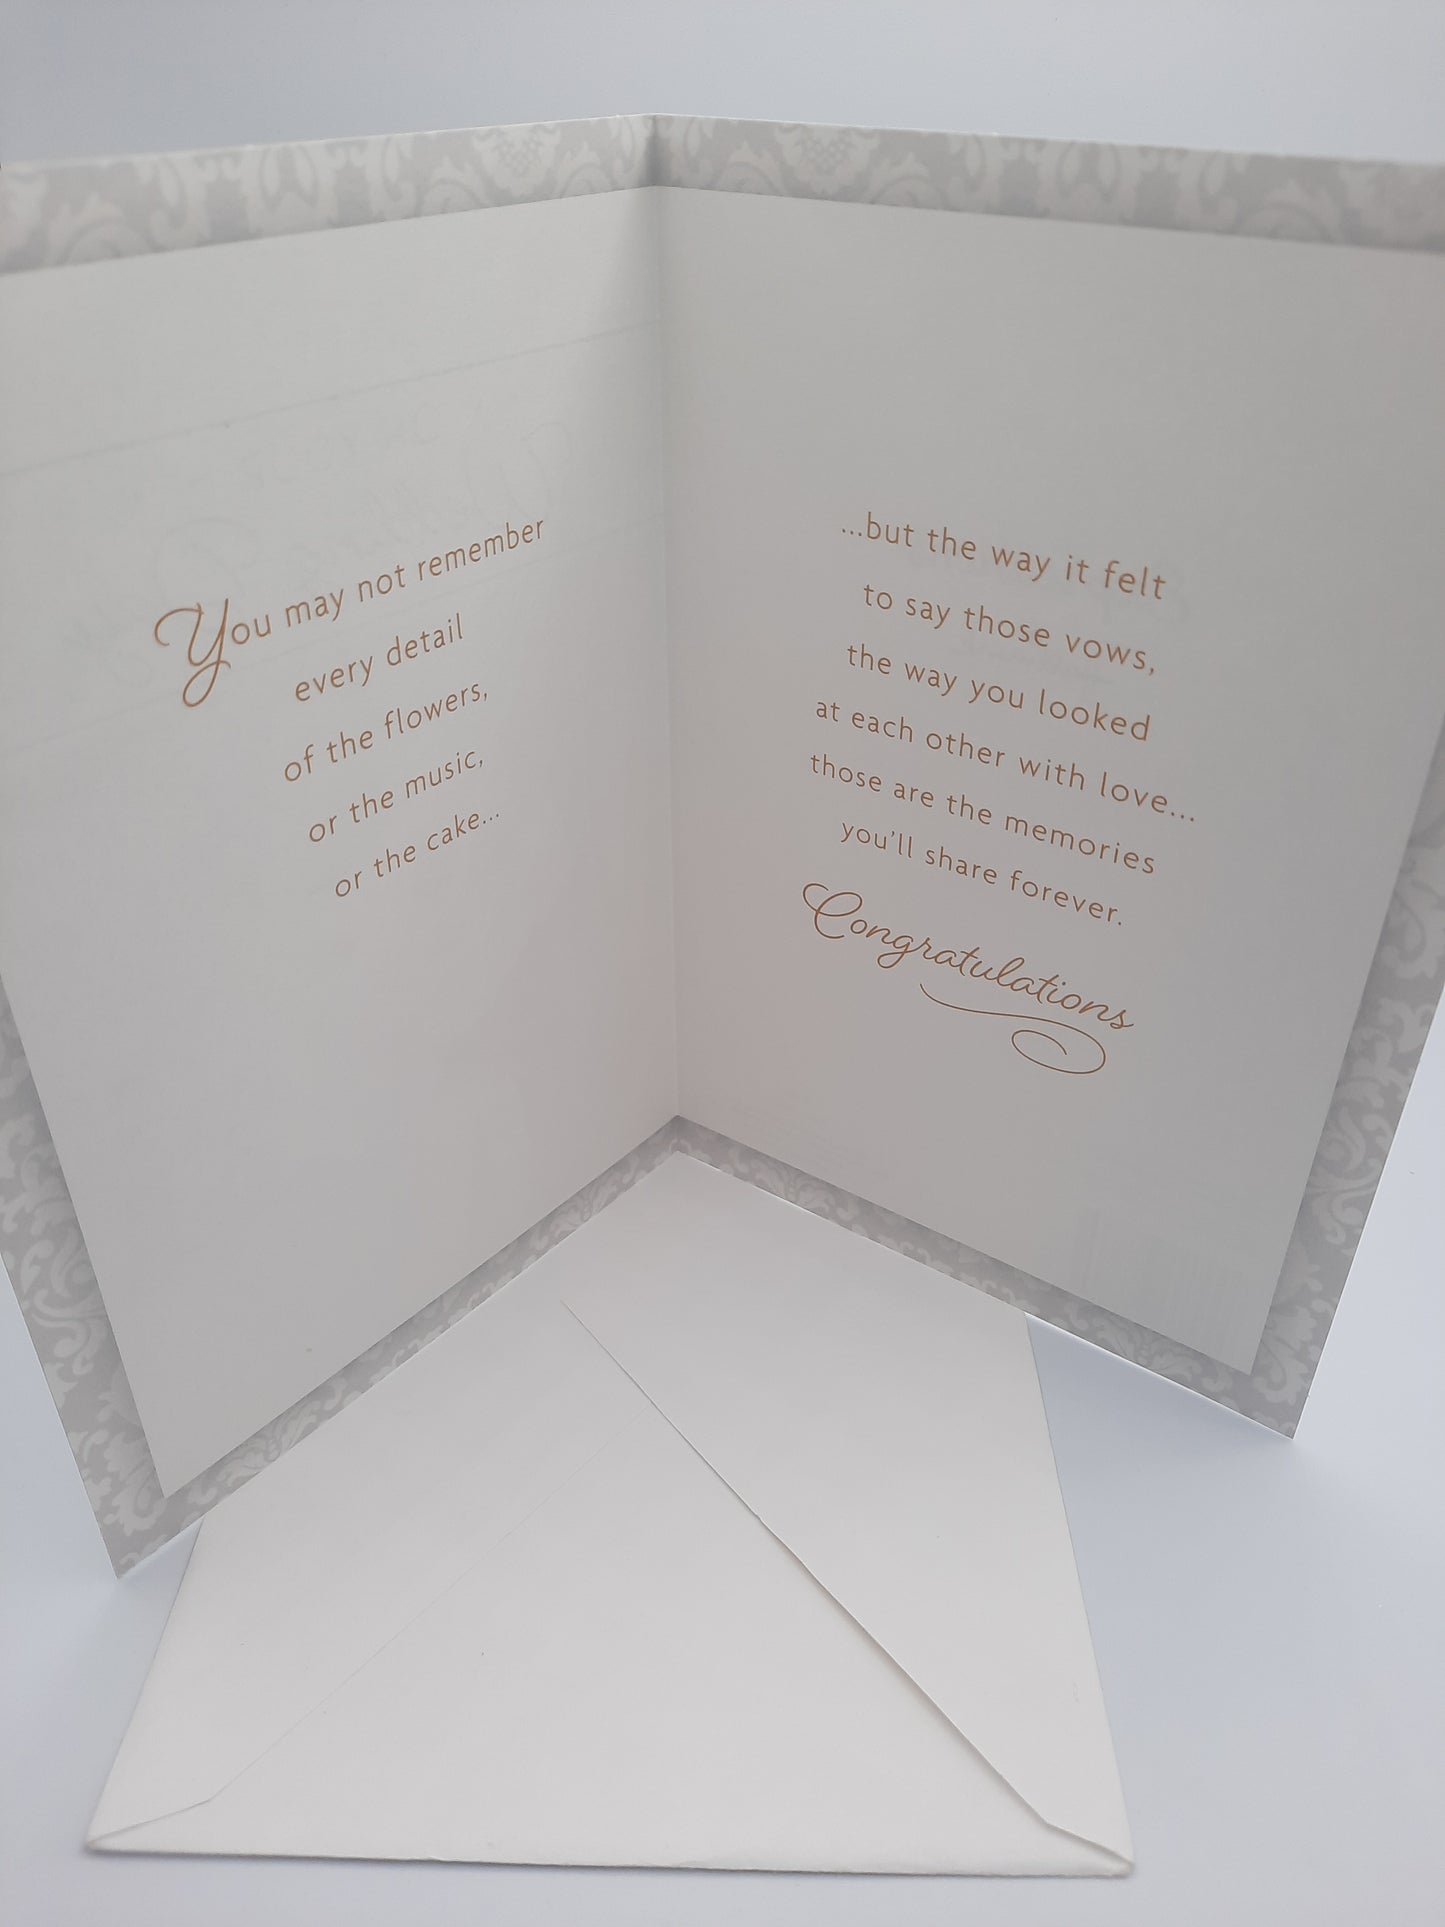 You may not remember
every detail
of the flowers,
or the music,
or the cake...
...but the way it felt
to say those vows,
the way you looked
at each other with love...
those are the memories
you'll share forever.
Congratulations